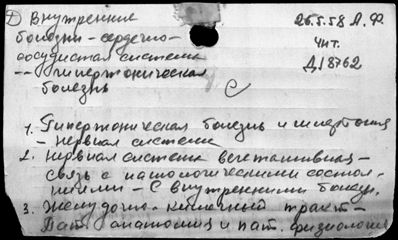 ① Внутренние
болезни - сердечно-
сосудистая система
-- гипертоническая
болезнь
26.5.58 Л.Ф
Чит.
Д18762
С
1. Гипертоническая болезнь и гипертония
- нервная система
2. Нервная система вегетативная -
связь с патологическими состоя-
ниями - С внутренними болезн.
3. Желудочно-кишечный тракт -
Пат. анатомия и пат. физиология